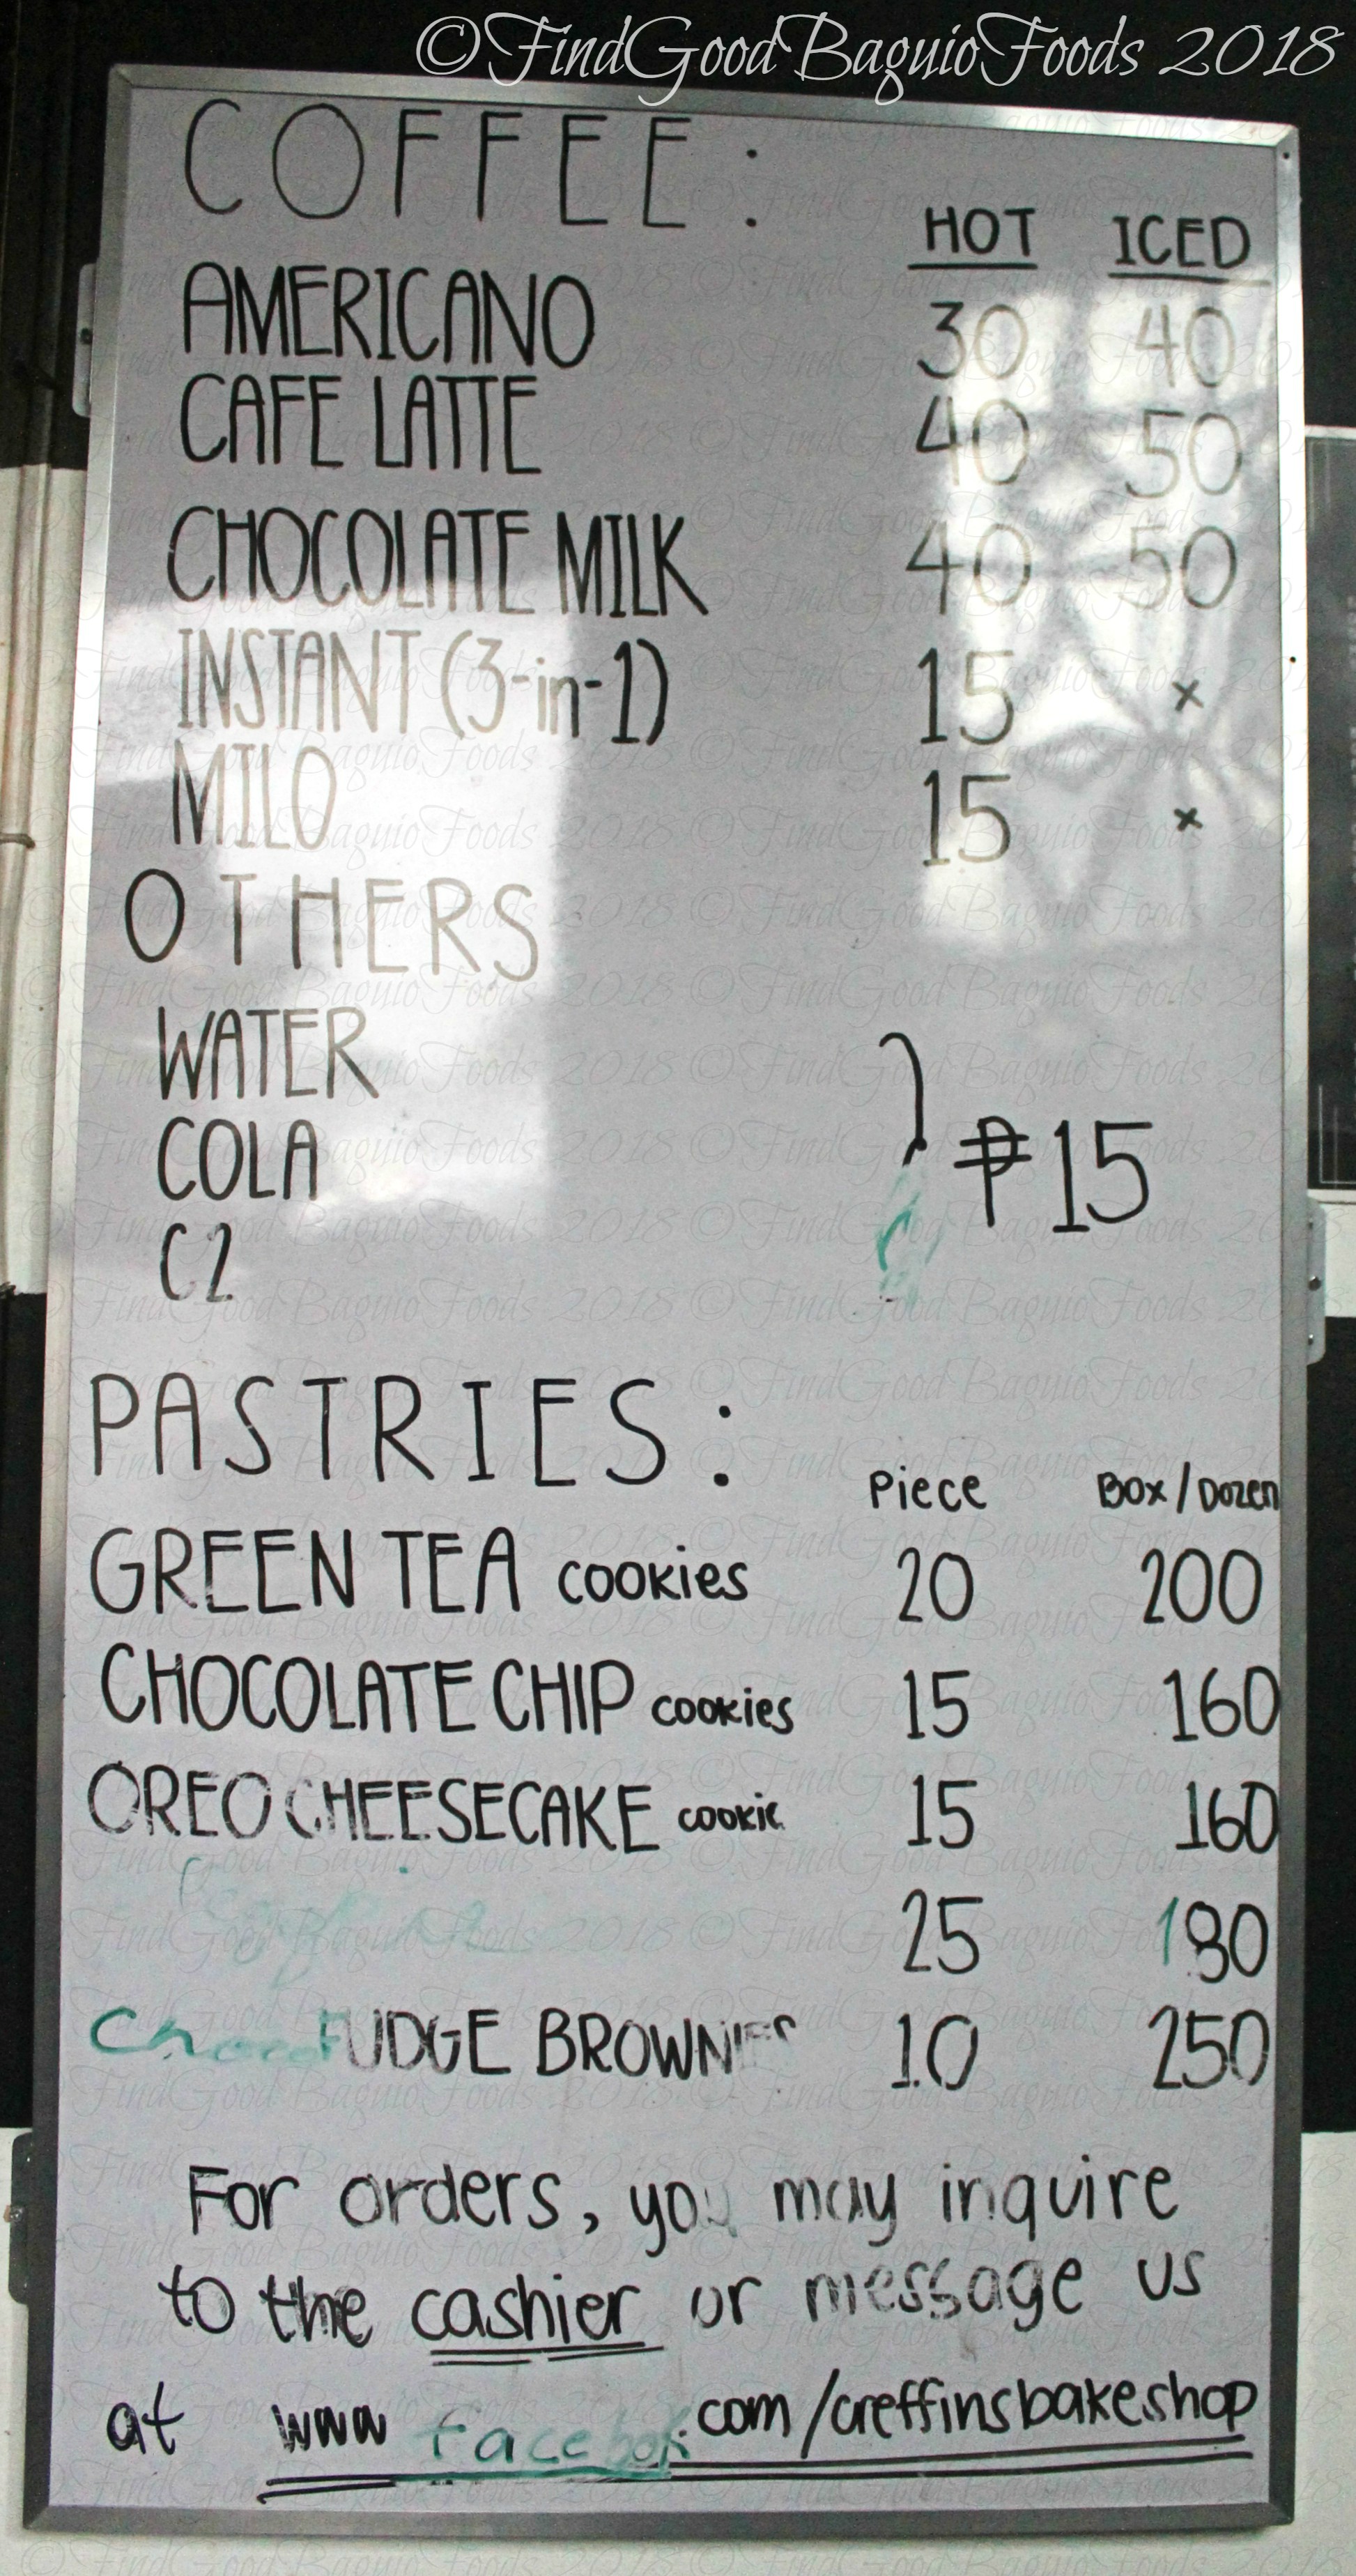 ©FindGoodBaguioFoods 2018
COFFEE:
HOT ICED
AMERICANO 30 40
CAFE LATTE 40 50
CHOCOLATE MILK 40 50
INSTANT (3-in-1) 15 x
MILO 15 x
OTHERS
WATER
COLA ₱15
C2
PASTRIES:
Piece Box/Dozen
GREEN TEA cookies 20 200
CHOCOLATE CHIP cookies 15 160
OREO CHEESECAKE cookie 15 160
25 180
Choco FUDGE BROWNIES 10 250
For orders, you may inquire
to the cashier or message us
at www facebook.com/creffinsbakeshop